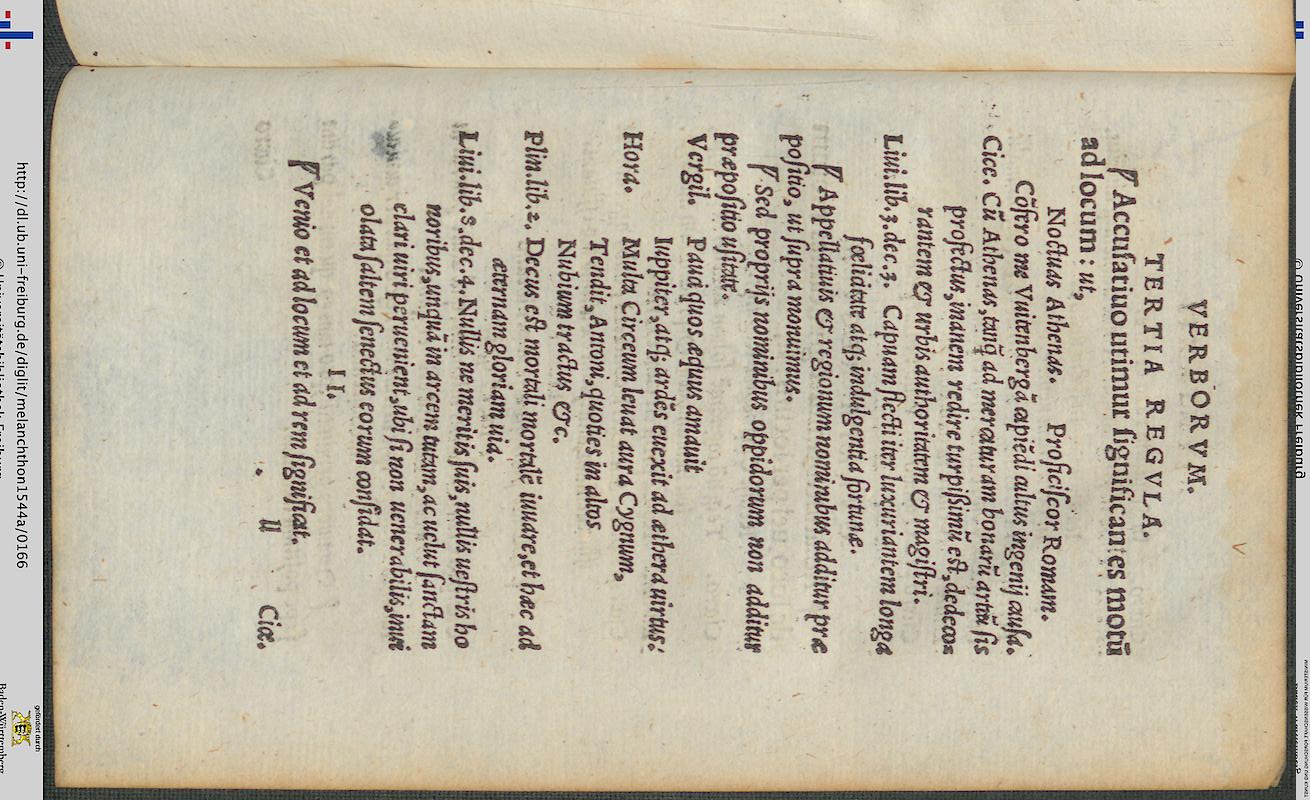 VERBORVM.
TERTIA REGVLA.
Accuſatiuo utimur ſignificantes motū
ad locum: ut,
Noctuas Athenas. Proficiſcor Romam.
Cōfero me Vuitenbergā capiēdi cultus ingenij cauſa.
Cice. Cū Athenas, tanq̃ ad mercaturam bonarū artiū ſis
profectus, inanem redire turpiſſimū eſt, dedeco⸗
rantem & urbis authoritatem & magiſtri.
Liui. lib. 3. dec. 3. Capuam flecti iter luxuriantem longa
fœlicitate atq; indulgentia fortunæ.
Appellatiuis & regionum nominibus additur præ
poſitio, ut ſupra monuimus.
Sed proprijs nominibus oppidorum non additur
præpoſitio uſitate.
Vergil. Pauci quos æquus amauit
Iuppiter, atq; ardēs euexit ad æthera uirtus:
Hora. Multa Circeum leuat aura Cygnum,
Tendit, Antoni, quoties in altos
Nubium tractus &c.
Plin. lib. 2. Decus eſt mortali mortalē iuuare, et hæc ad
æternam gloriam uia.
Liui. lib. 8. dec. 4. Nullis ne meritis ſuis, nullis ueſtris ho
noribus, unquā in arcem tutam, ac uelut ſanctam
clari uiri peruenient, ubi ſi non uenerabilis, inui
olata ſaltem ſenectus eorum conſidat.
II.
Venio et ad locum et ad rem ſignificat.
ll Cice.
http://dl.ub.uni-freiburg.de/diglit/melanchthon1544a/0166
© Universitätsbibliothek Freiburg
gefördert durch
Baden-Württemberg